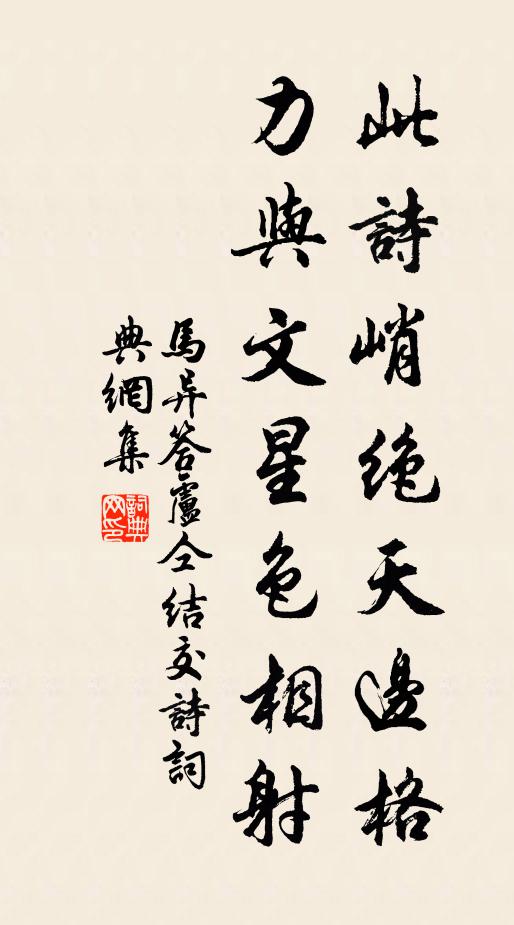 此詩峭絶天邊格
力與文星色相射
馬异答盧仝結交詩詞
典網集
詞典
网印